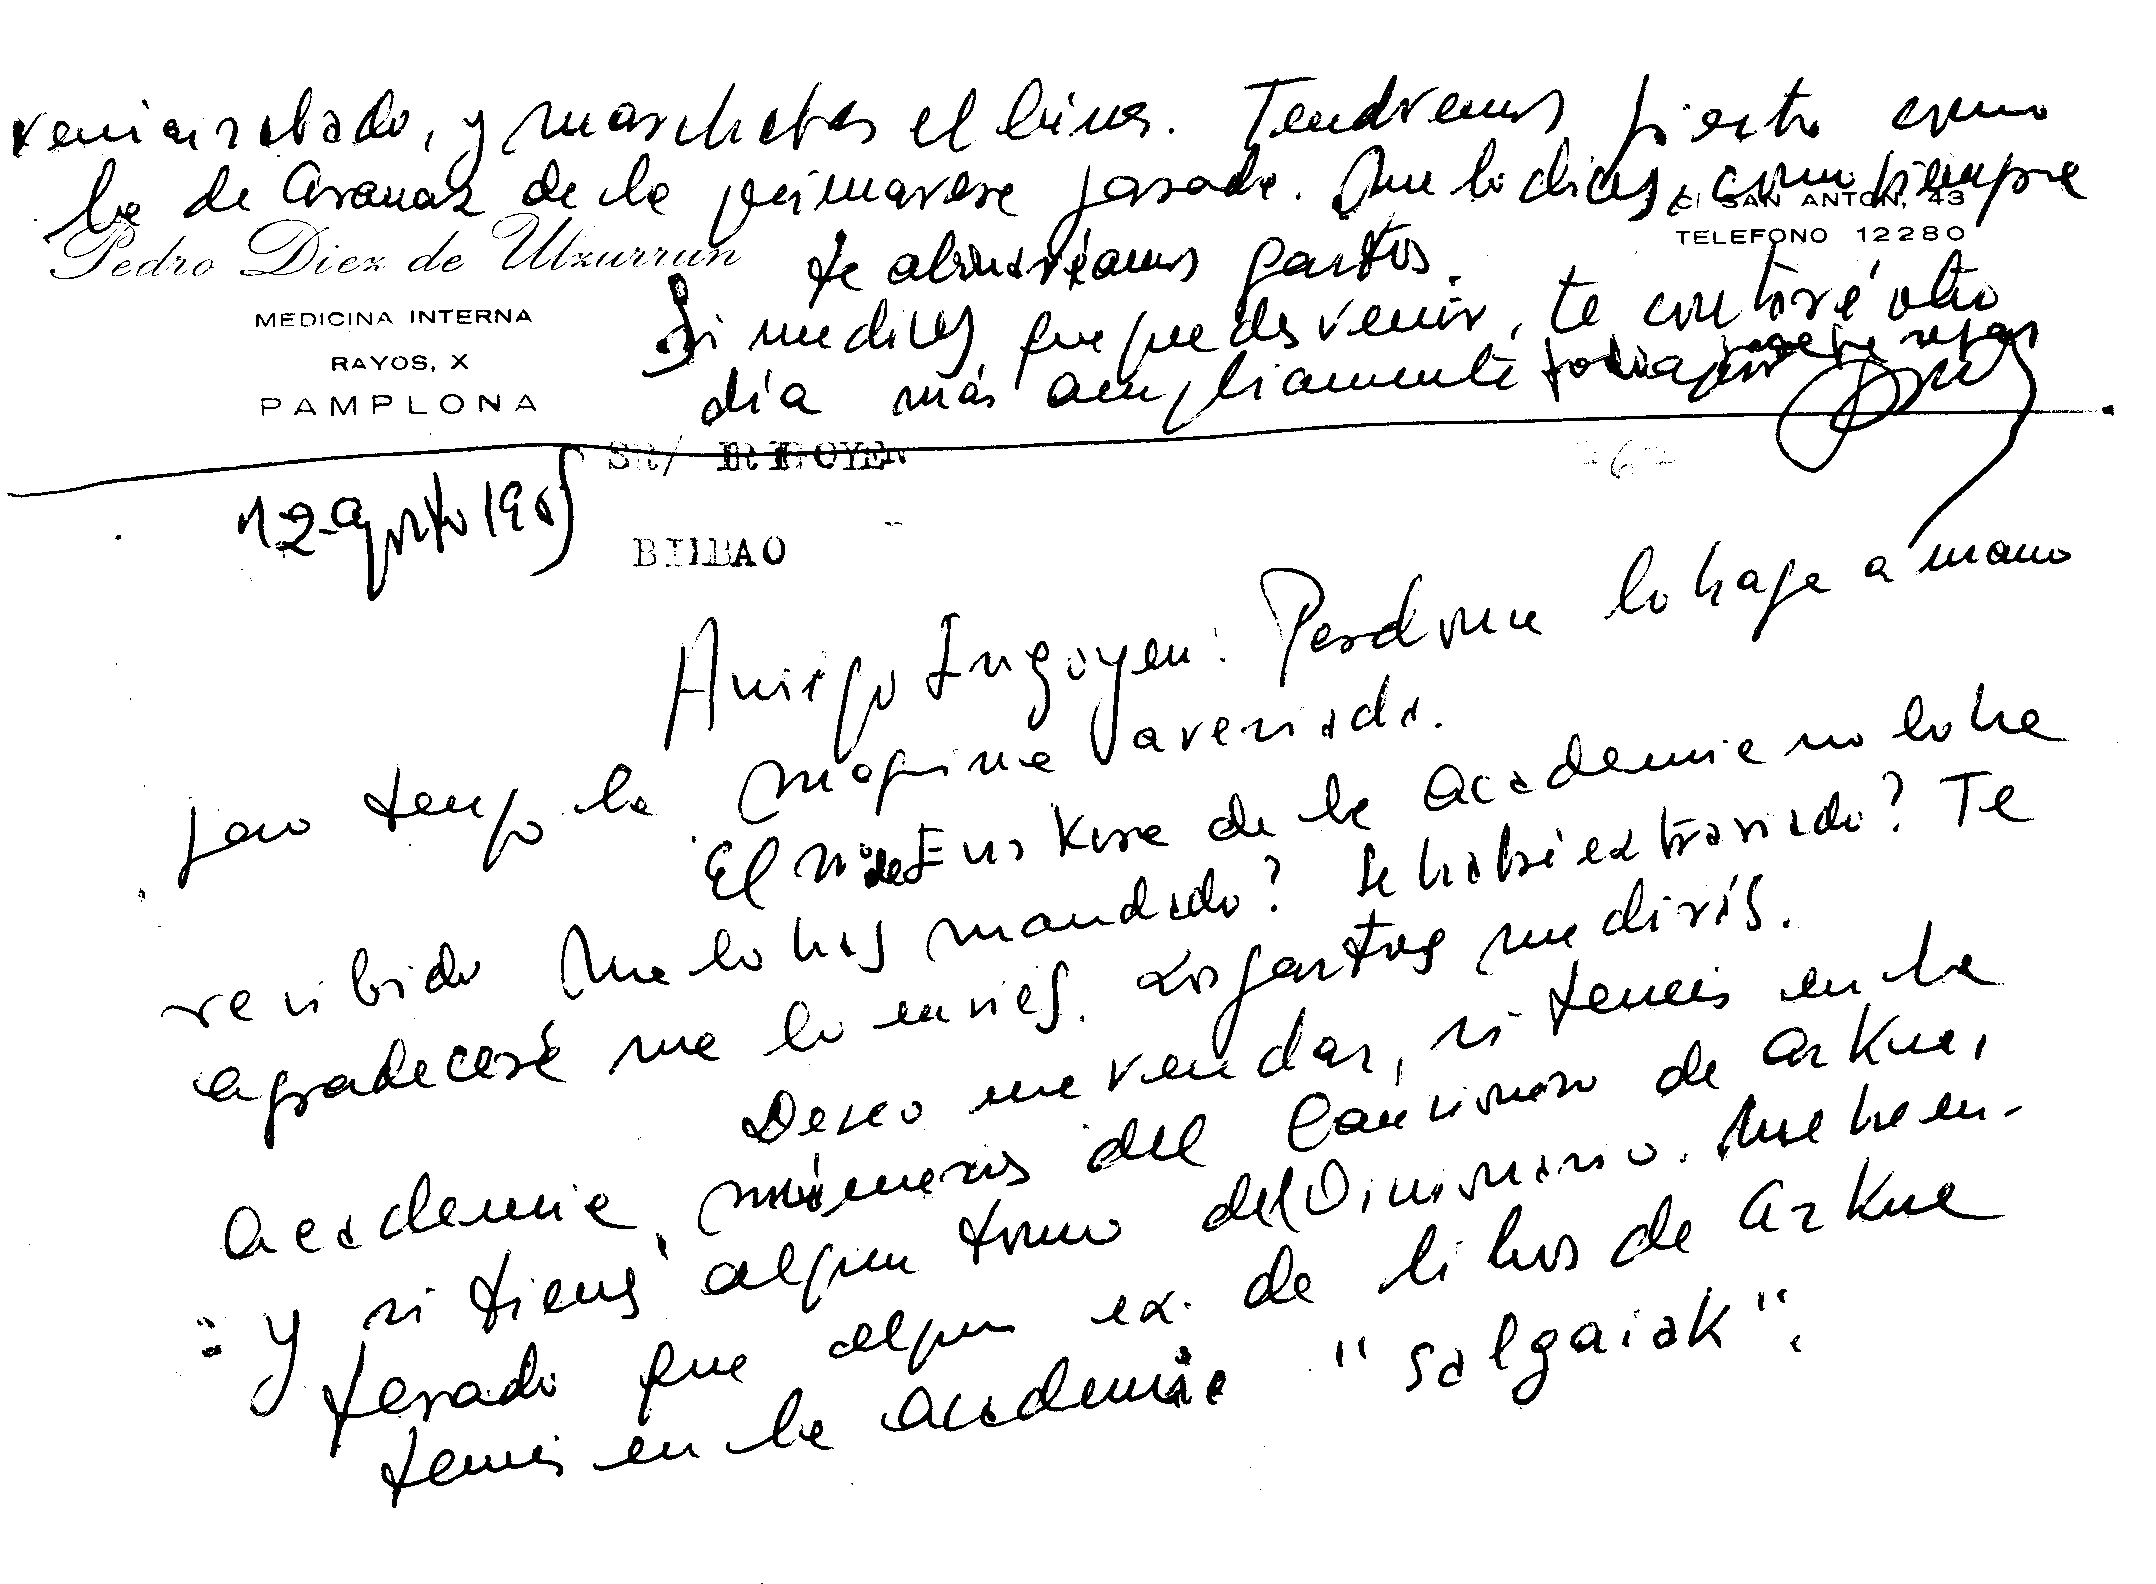 venir sábado, y marchabas el lunes. Tendremos fiesta como
la de Aranaz de la primavera pasada. Me lo dices, como siempre
C/ SAN ANTON, 43
Pedro Diez de Ulzurrun
TELEFONO 12280
te abonaréamos gastos.
MEDICINA INTERNA
Si me dices que puedes venir, te contaré otro
RAYOS, X
día más ampliamente
PAMPLONA
SR/ IRIGOYEN
12 agosto 1965
BILBAO
Amigo Irigoyen: Perdone lo haga a mano
pero tengo la máquina averiada.
El nº de Euskera de la Academia no lo he
recibido Me lo has mandado? Se habrá extraviado? Te
agradeceré me lo envíes. Los gastos me dirás.
Deseo me vendas, si tenéis en la
Academia, números del Cancionero de Azkue,
Y si tienes algun tomo del Diccionario. Me he en-
terado que algun ex. de libros de Azkue
teneis en la Academia "salgaiak".